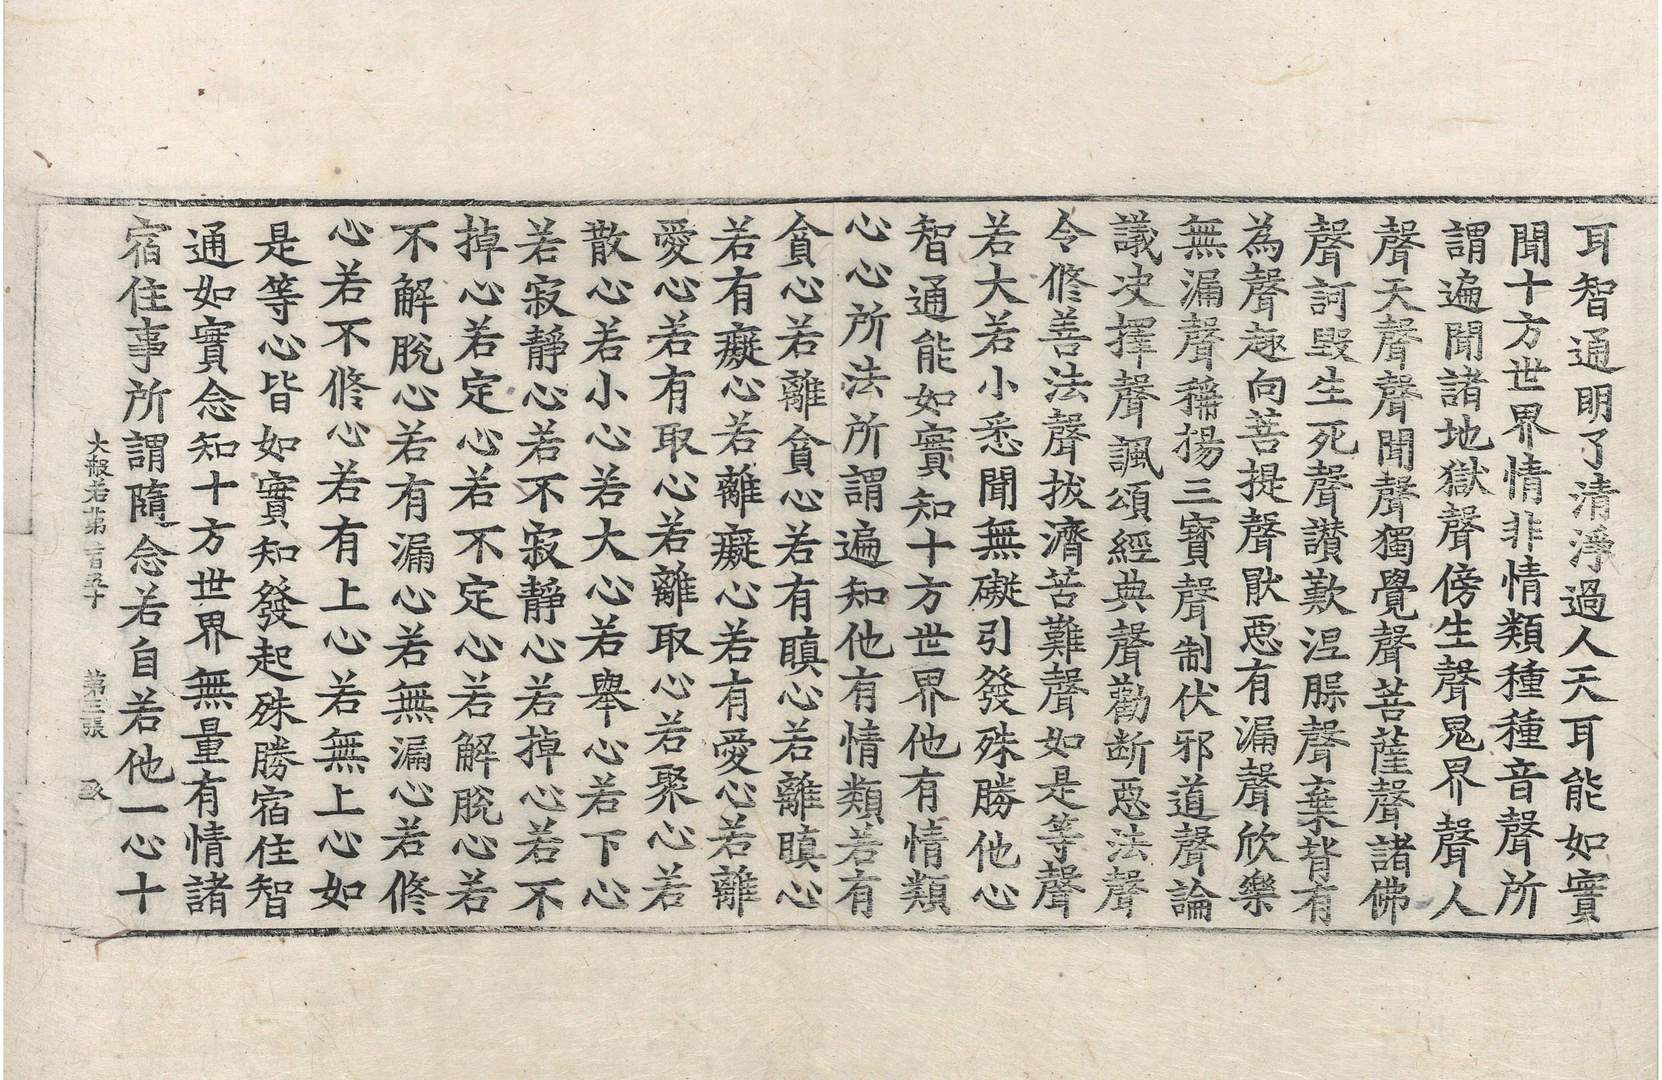 耳智通明了清淨過人天耳能如實
聞十方世界情非情類種種音聲所
謂遍聞諸地獄聲傍生聲鬼界聲人
聲天聲聲聞聲獨覺聲菩薩聲諸佛
聲訶毀生死聲讚歎涅槃聲棄背有
為聲趣向菩提聲猒惡有漏聲欣樂
無漏聲稱揚三寶聲制伏邪道聲論
議决擇聲諷頌經典聲勸断惡法聲
令修善法聲拔濟苦難聲如是等聲
若大若小悉聞無礙引發殊勝他心
智通能如實知十方世界他有情類
心心所法所謂遍知他有情類若有
貪心若離貪心若有瞋心若離瞋心
若有癡心若離癡心若有愛心若離
愛心若有取心若離取心若聚心若
散心若小心若大心若舉心若下心
若寂靜心若不寂靜心若掉心若不
掉心若定心若不定心若解脫心若
不解脫心若有漏心若無漏心若修
心若不修心若有上心若無上心如
是等心皆如實知發起殊勝宿住智
通如實念知十方世界無量有情諸
宿住事所謂隨念若自若他一心十
大般若第三百五十　第三張　致